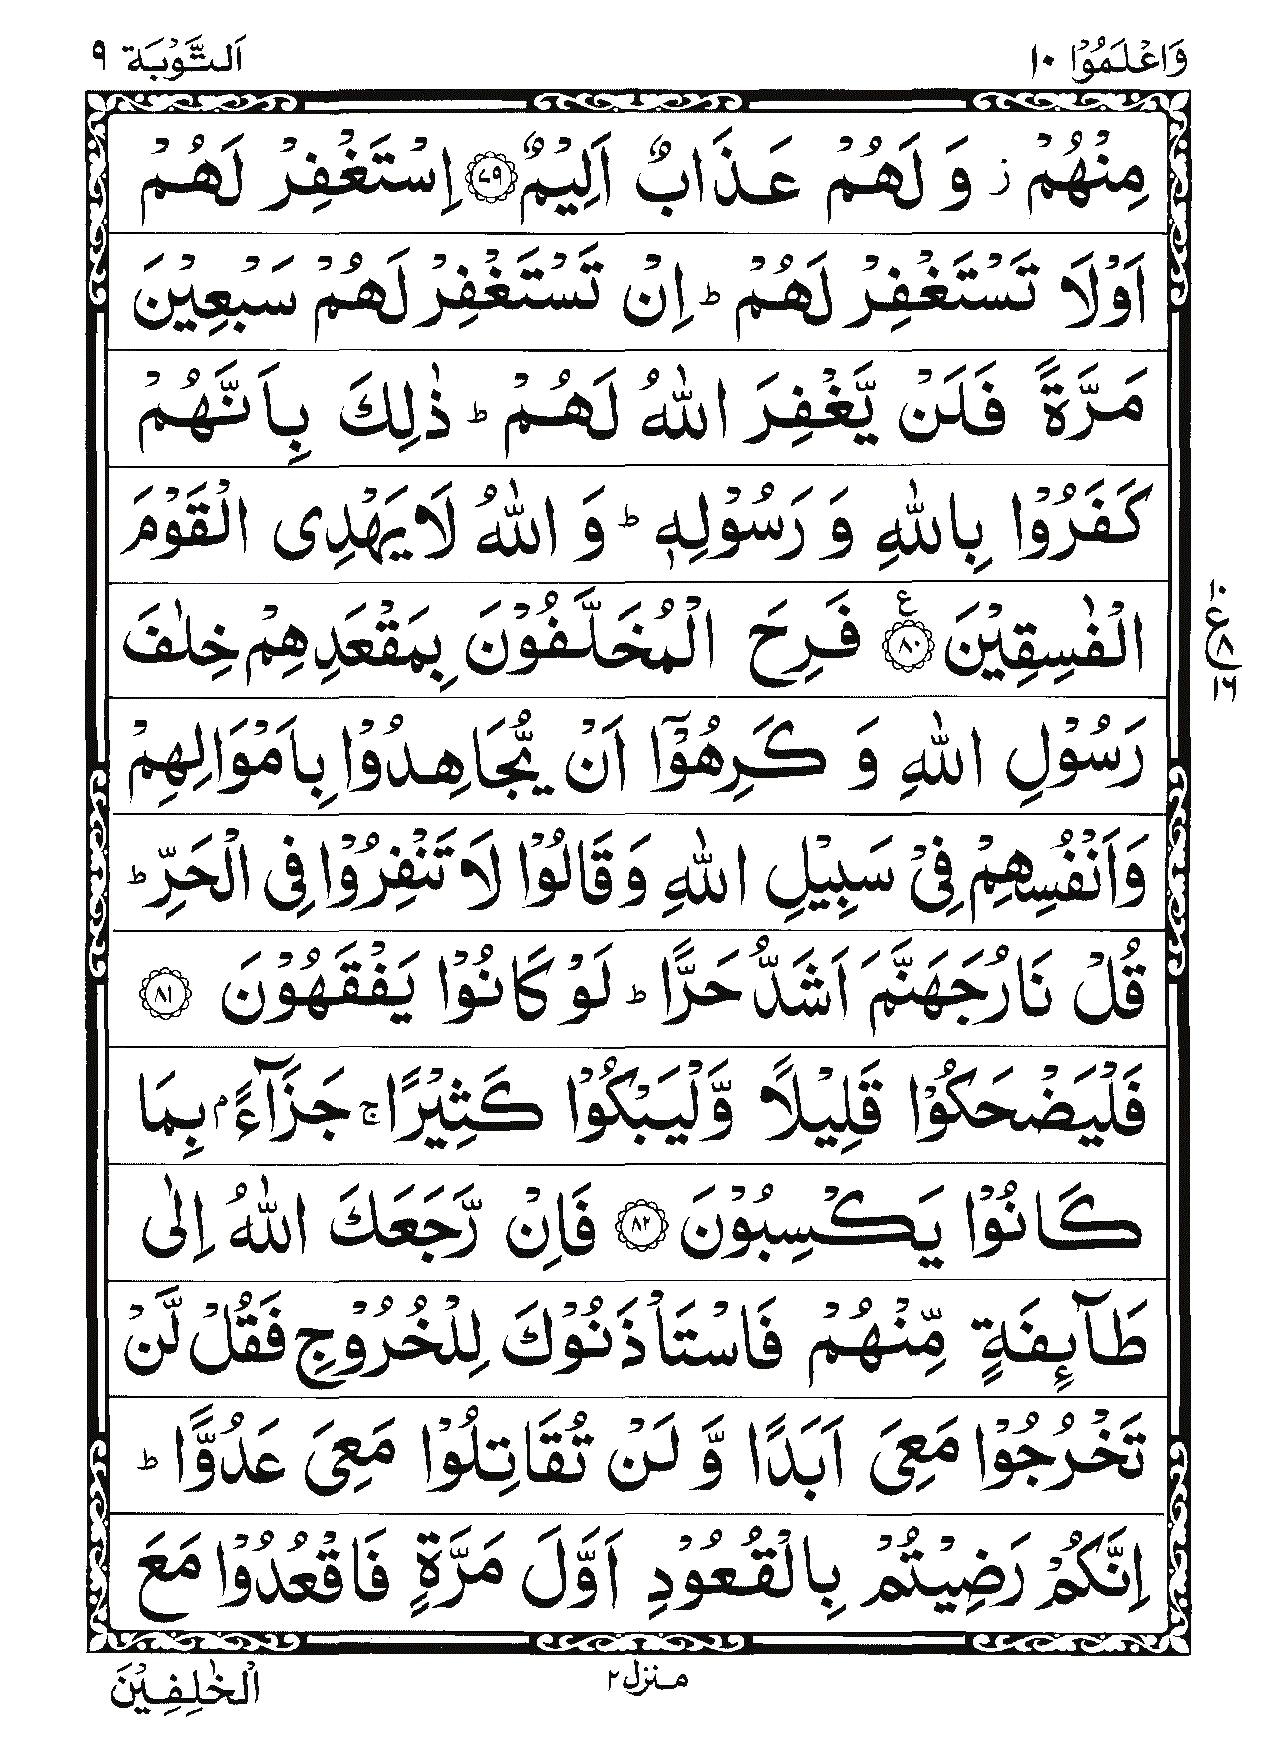 وَاعْلَمُوْا ١٠
اَلتَّوْبَة ٩
مِنْهُمْ ز وَ لَهُمْ عَذَابٌ اَلِيْمٌ ﴿٧٩﴾ اِسْتَغْفِرْ لَهُمْ
اَوْلَا تَسْتَغْفِرْ لَهُمْ ؕ اِنْ تَسْتَغْفِرْ لَهُمْ سَبْعِيْنَ
مَرَّةً فَلَنْ يَّغْفِرَ اللّٰهُ لَهُمْ ؕ ذٰلِكَ بِاَنَّهُمْ
كَفَرُوْا بِاللّٰهِ وَ رَسُوْلِهٖ ؕ وَ اللّٰهُ لَا يَهْدِى الْقَوْمَ
الْفٰسِقِيْنَ ﴿٨٠﴾ ع فَرِحَ الْمُخَلَّفُوْنَ بِمَقْعَدِهِمْ خِلٰفَ
١٠
ع ٨
١٦
رَسُوْلِ اللّٰهِ وَ كَرِهُوْۤا اَنْ يُّجَاهِدُوْا بِاَمْوَالِهِمْ
وَاَنْفُسِهِمْ فِىْ سَبِيْلِ اللّٰهِ وَقَالُوْا لَا تَنْفِرُوْا فِى الْحَرِّ ؕ
قُلْ نَارُ جَهَنَّمَ اَشَدُّ حَرًّا ؕ لَوْ كَانُوْا يَفْقَهُوْنَ ﴿٨١﴾
فَلْيَضْحَكُوْا قَلِيْلًا وَّلْيَبْكُوْا كَثِيْرًا ج جَزَآءًۢ بِمَا
كَانُوْا يَكْسِبُوْنَ ﴿٨٢﴾ فَاِنْ رَّجَعَكَ اللّٰهُ اِلٰى
طَآىِٕفَةٍ مِّنْهُمْ فَاسْتَاْذَنُوْكَ لِلْخُرُوْجِ فَقُلْ لَّنْ
تَخْرُجُوْا مَعِىَ اَبَدًا وَّ لَنْ تُقَاتِلُوْا مَعِىَ عَدُوًّا ؕ
اِنَّكُمْ رَضِيْتُمْ بِالْقُعُوْدِ اَوَّلَ مَرَّةٍ فَاقْعُدُوْا مَعَ
منزل ٢
الْخٰلِفِيْنَ